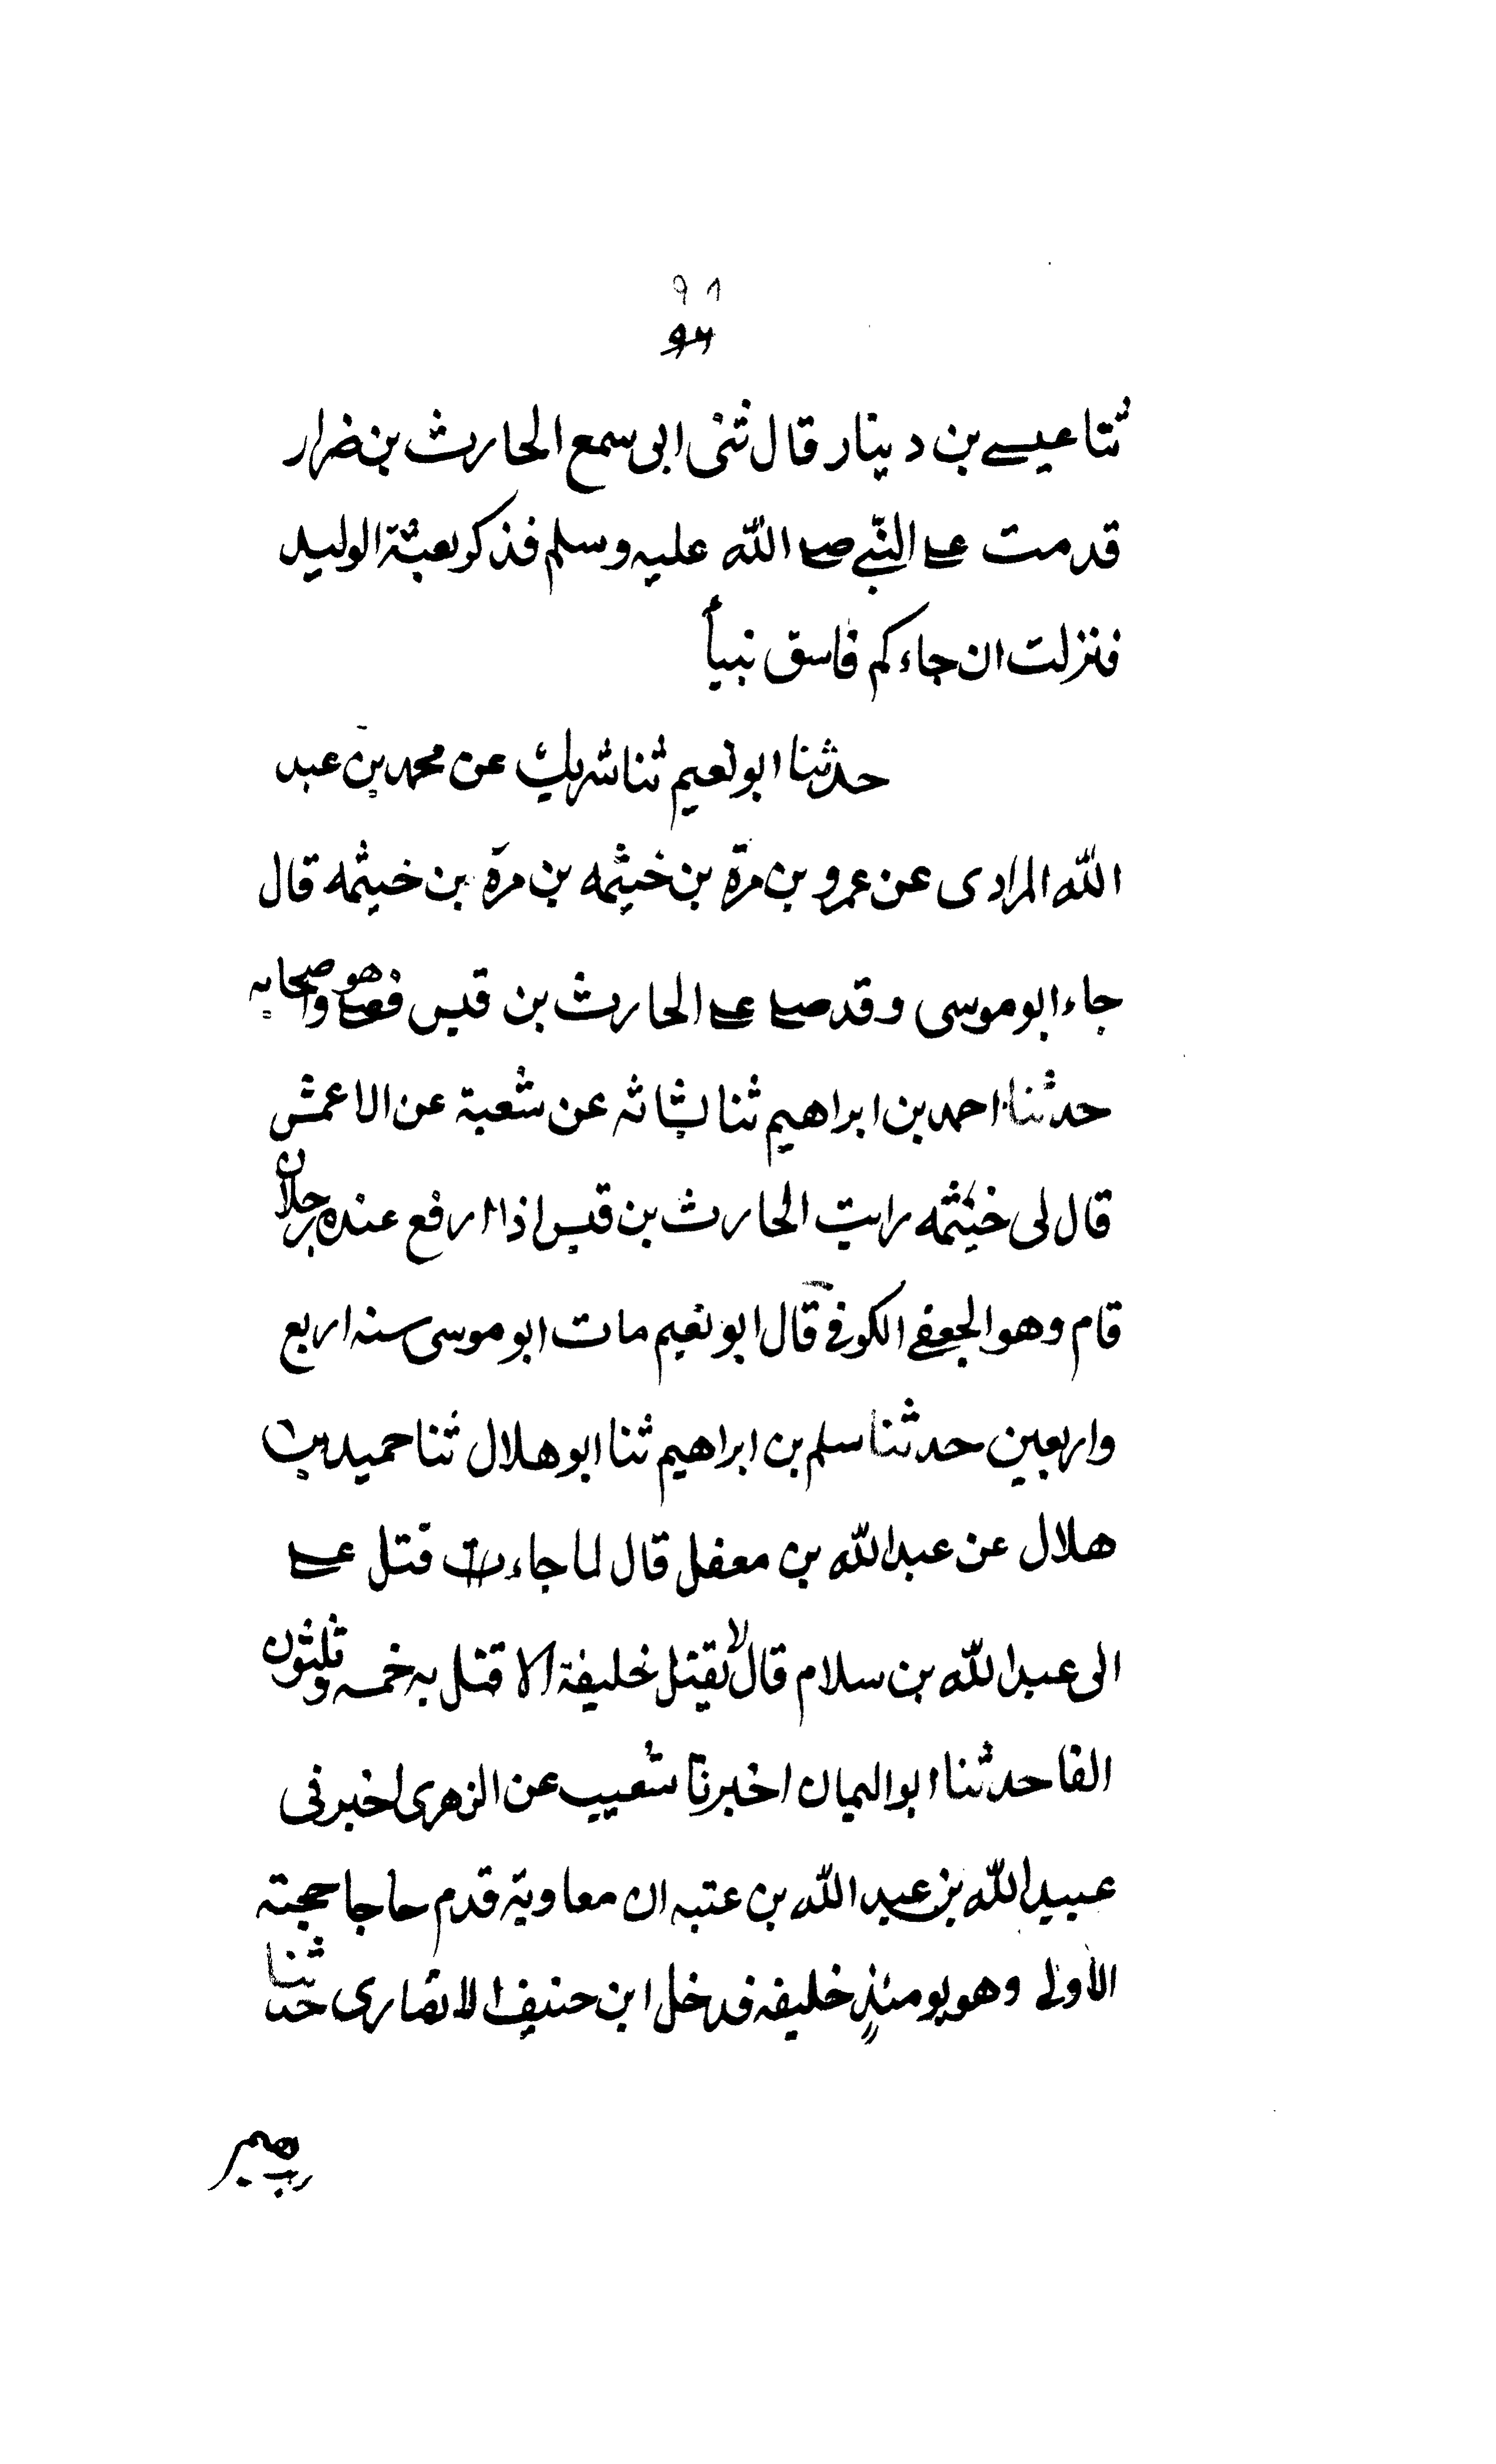 ٩٨
ثنا عيسے بن دينار قال ثنى ابى سمع الحارث بن ضرار
قدمت علے النبے صلے الله عليه وسلم فذكر بعثة الوليد
فنزلت ان جاءكم فاسق نبيأ
حدثنا ابو نعيم ثنا شريك عن محمد بن عبد
الله المرادى عن عمرو بن مرة بن خيثمه بن مرة بن خيثمه قال
جاء ابو موسى وقد صلے علے الحارث بن قيس فصلے هو واصحابه
حدثنا احمد بن ابراهيم ثنا شبابه عن شعبة عن الاعمش
قال لى خيثمه رايت الحارث بن قيس اذا ارفع عنده رجلان
قام وهو الجعفے الكوفے قال ابو نعيم مات ابو موسى سنه اربع
واربعين حدثنا سلم بن ابراهيم ثنا ابو هلال ثنا حميد بن
هلال عن عبد الله بن معفل قال لما جاءت قتل علے
الى عبد الله بن سلام قال لا يقتل خليفة الا قتل به خمسه وثلثون
الفا حدثنا ابو اليمان اخبرنا شعيب عن الزهرى اخبرنى
عبيد الله بن عبد الله بن عتبه ان معاوية قدم حاجا حجته
الأولى وهو يومئذ خليفه فدخل ابن حنيف الانصارى حدثنا